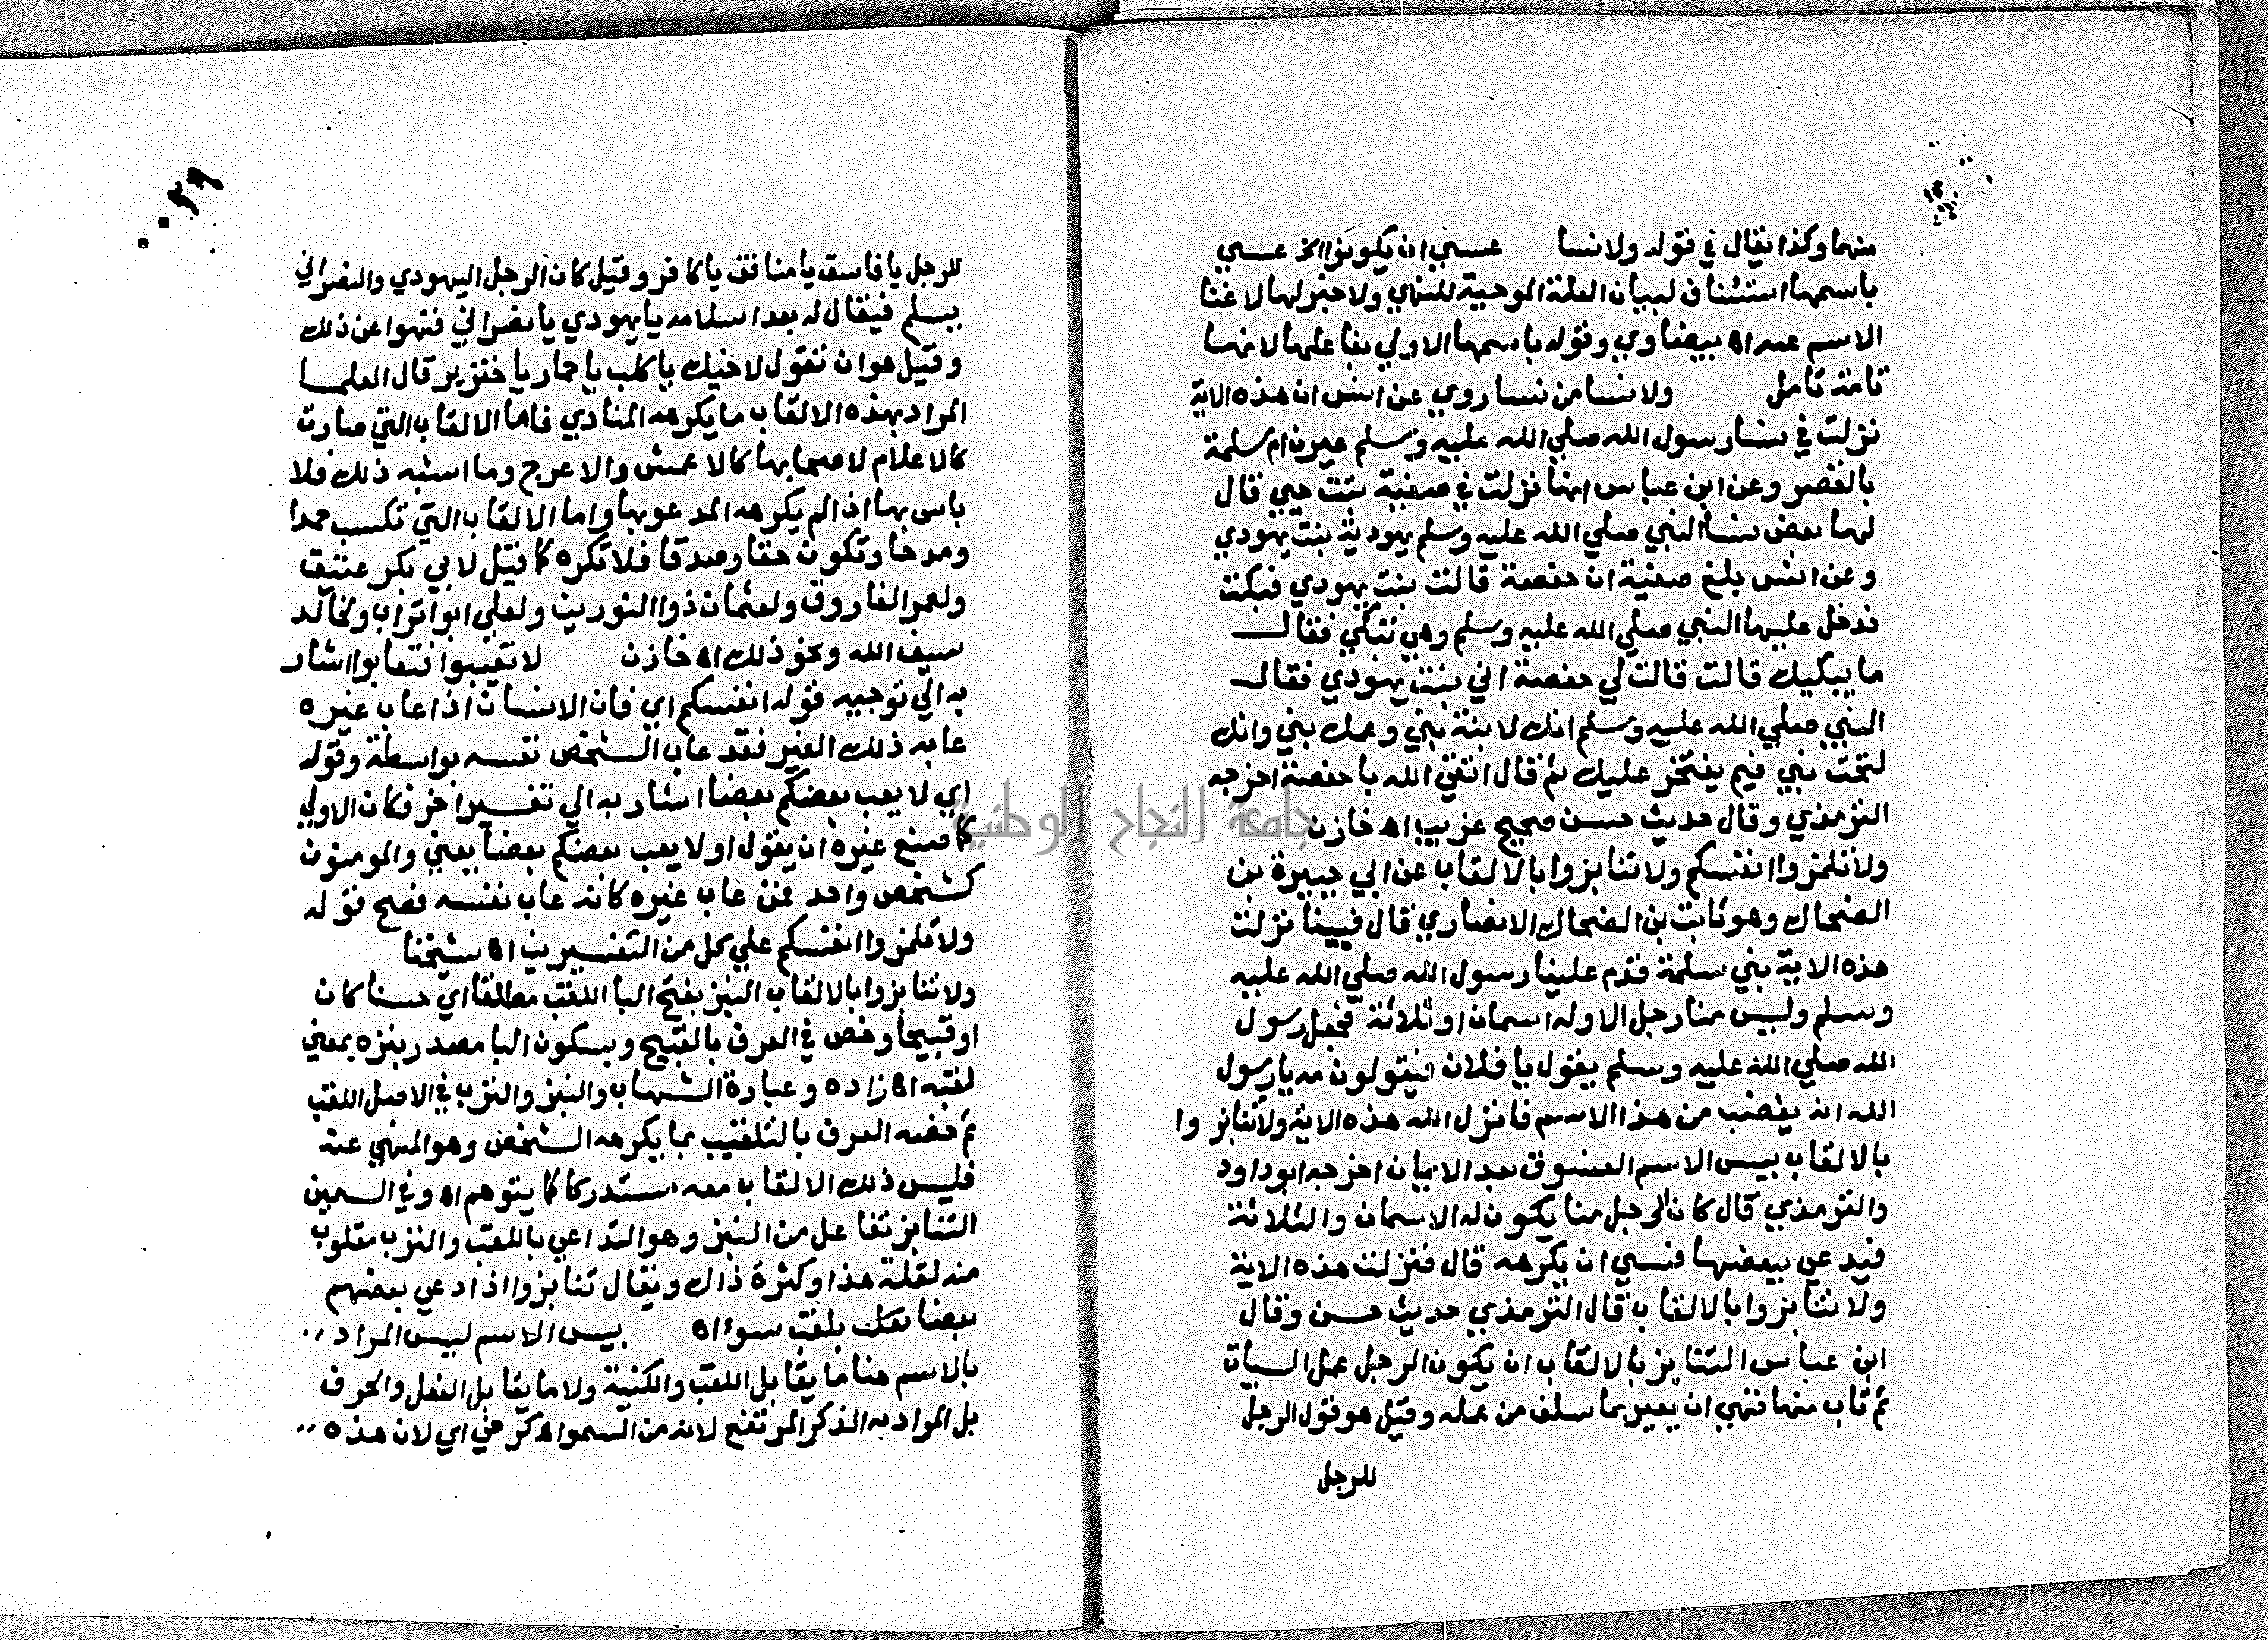 منهما وكذا يقال في قوله ولا نسا عسي ان يكونوا الخ عسي
باسمها استئناف لبيان العلة الموجبة للنهي ولا خبر لها لاغنا
الاسم عنه اه بيضاوي وقوله باسمها الاولي بفاعلها لانها
تامة تامل ولا نسا من نسا روي عن انس ان هذه الاية
نزلت في نسا رسول الله صلي الله عليه وسلم عيرن ام سلمة
بالقصر وعن ابن عباس انها نزلت في صفية بنت حيي قال
لها بعض نسا النبي صلي الله عليه وسلم يهودية بنت يهودي
وعن انس بلغ صفية ان حفصة قالت بنت يهودي فبكت
فدخل عليها النبي صلي الله عليه وسلم وهي تبكي فقال
ما يبكيك قالت قالت لي حفصة اني بنت يهودي فقال
النبي صلي الله عليه وسلم انك لابنة نبي وعمك نبي وانك
لتحت نبي فيم يفتخر عليك ثم قال اتقي الله يا حفصة اخرجه
الترمذي وقال حديث حسن صحيح غريب اه خازن
ولا تلمزوا انفسكم ولا تنابزوا بالالقاب عن ابي جبيرة بن
الضحاك وهو ثابت بن الضحاك الانصاري قال فيينا نزلت
هذه الاية بني سلمة قدم علينا رسول الله صلي الله عليه
وسلم وليس منا رجل الا وله اسمان او ثلاثة فجعل رسول
الله صلي الله عليه وسلم يقول يا فلان فيقولون مه يا رسول
الله انه يغضب من هذا الاسم فانزل الله هذه الاية ولا تنابزوا
بالالقاب بيس الاسم الفسوق بعد الايمان اخرجه ابو داود
والترمذي قال كان الرجل منا يكون له الاسمان والثلاثة
فيدعي ببعضها فنسي ان يكرهه قال فنزلت هذه الاية
ولا تنابزوا بالالقاب قال الترمذي حديث حسن وقال
ابن عباس التنابز بالالقاب ان يكون الرجل عمل السيات
ثم تاب منها فنهي ان يعير بما سلف من عمله وقيل هو قول الرجل
للرجل
للرجل يا فاسق يا منافق يا كافر وقيل كان الرجل اليهودي والنصراني
يسلم فيقال له بعد اسلامه يا يهودي يا نصراني فنهوا عن ذلك
وقيل هو ان تقول لاخيك يا كلب يا حمار يا خنزير قال العلما
المراد بهذه الالقاب ما يكرهه المنادي فاما الالقاب التي صارت
كالاعلام لاصحابها كالاعمش والاعرج وما اشبه ذلك فلا
باس بها اذا لم يكرهه المدعو بها واما الالقاب التي تكسب حمدا
ومدحا وتكون حقا وصدقا فلا تكره كما قيل لابي بكر عتيق
ولعمر الفاروق ولعثمان ذو النورين ولعلي ابو تراب ولخالد
سيف الله ونحو ذلك اه خازن لا تعيبوا فتعابوا اشار
به الي توجيه قوله انفسكم اي فان الانسان اذا عاب غيره
عابه ذلك الغير فقد عاب الشخص نفسه بواسطة وقوله
اي لا يعب بعضكم بعضا اشار به الي تفسير اخر فكان الاولي
كما صنع غيره ان يقول او لا يعب بعضكم بعضا يعني والمومنون
كشخص واحد فمن عاب غيره كانه عاب نفسه فصح قوله
ولا تلمزوا انفسكم علي كل من التفسيرين اه شيخنا
ولا تنابزوا بالالقاب النبز بفتح البا اللقب مطلقا اي حسنا كان
او قبيحا وخص في العرف بالقبيح وبسكون البا مصدر نبزه بمعني
لقبه اه زاده وعبارة الشهاب والنبز والنزب في الاصل اللقب
ثم خصه العرف بالتلقيب بما يكرهه الشخص وهو المنهي عنه
فليس ذلك الالقاب معه مستدركا كما يتوهم اه وفي السمين
التنابز تفاعل من النبز وهو التداعي باللقب والنزب مقلوب
منه لقلة هذا وكثرة ذاك ويقال تنابزوا اذا دعي بعضهم
بعضا بلقب سوء اه بيس الاسم ليس المراد
بالاسم هنا ما يقابل اللقب والكنية ولا ما يقابل الفعل والحرف
بل المراد به الذكر المرتفع لانه من السمو اه كرخي اي لان هذه
جامعة النجاح الوطنية